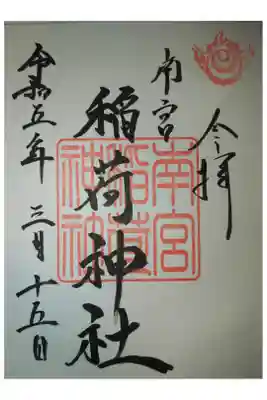 拝
南宮
稲荷神社
南宮
稲荷
神社
令和五年 三月十五日